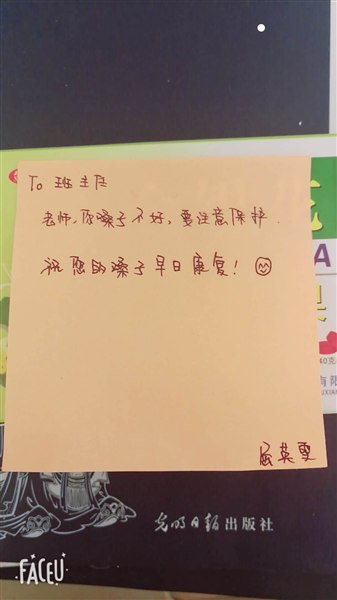 To 班主任
老师,你嗓子不好,要注意保护.
祝您的嗓子早日康复!
A
40克
有限
UXIAN
光明日报出版社
FACEU